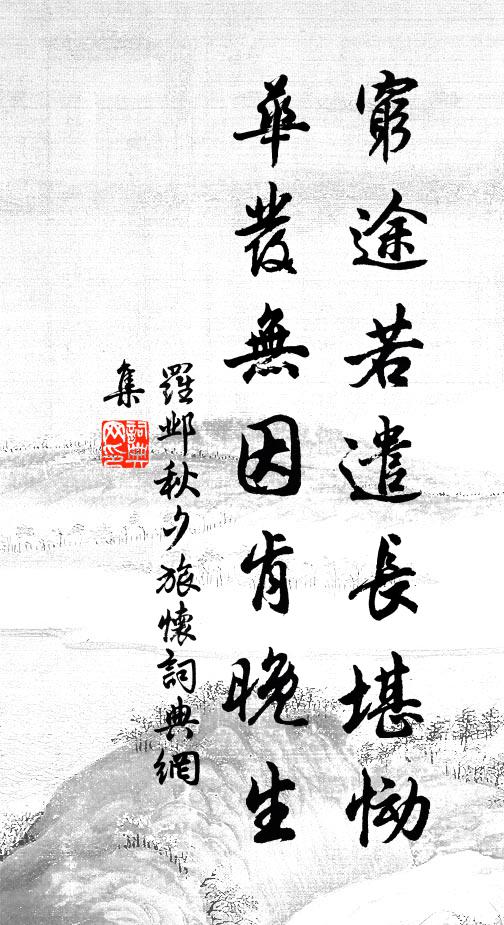 窮途若遣長堪慟
華發無因肯晚生
羅鄴秋夕旅懷詞典網
集